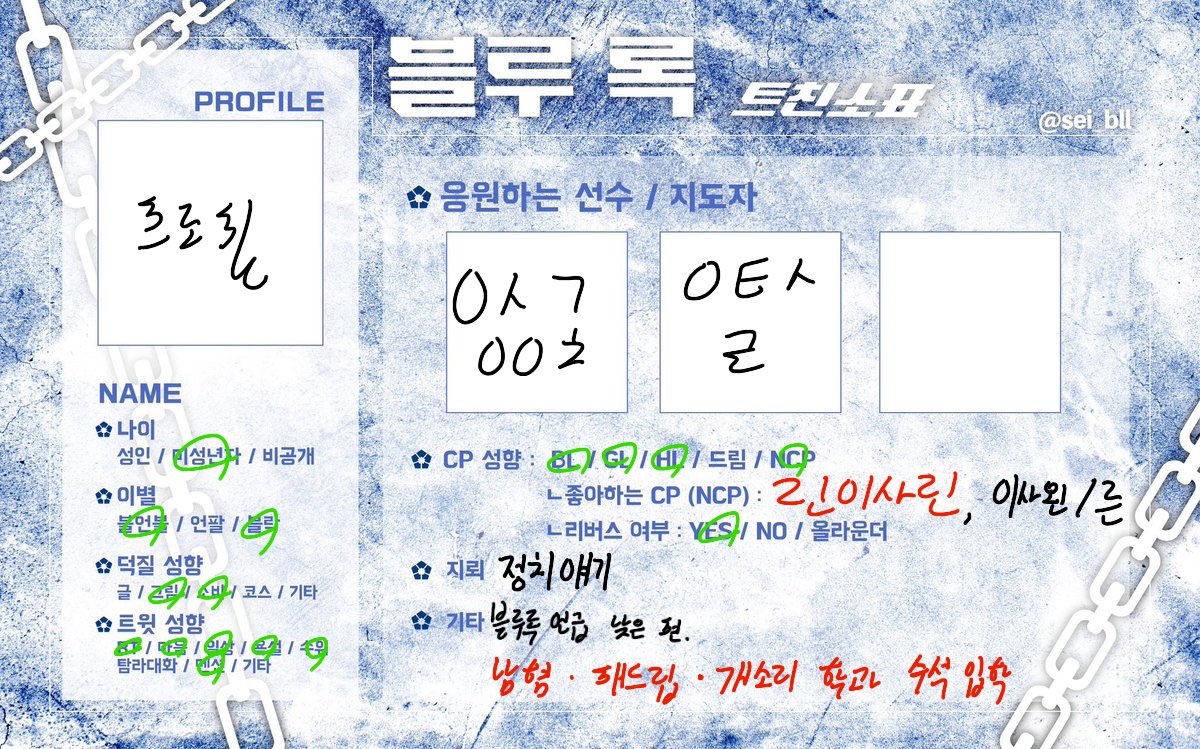 블루 록 트친소표
@sei_bll
PROFILE
프로필
NAME
나이
성인 / 미성년자 / 비공개
이별
블언블 / 언팔 / 블락
덕질 성향
글 / 그림 / 소비 / 코스 / 기타
트윗 성향
RT / 마음 / 일상 / 욕설 / 수위
탐라대화 / 멘션 / 기타
응원하는 선수 / 지도자
ㅇㅅㄱ
ㅇㅇㅊ
ㅇㅌㅅ
ㄹ
CP 성향 : BL / GL / HL / 드림 / NCP
ㄴ좋아하는 CP (NCP) : 린이사린, 이사왼/른
ㄴ리버스 여부 : YES / NO / 올라운더
지뢰 정치얘기
기타 블루록 언급 낮은 편.
남혐 · 패드립 · 개소리 학과 수석 입학